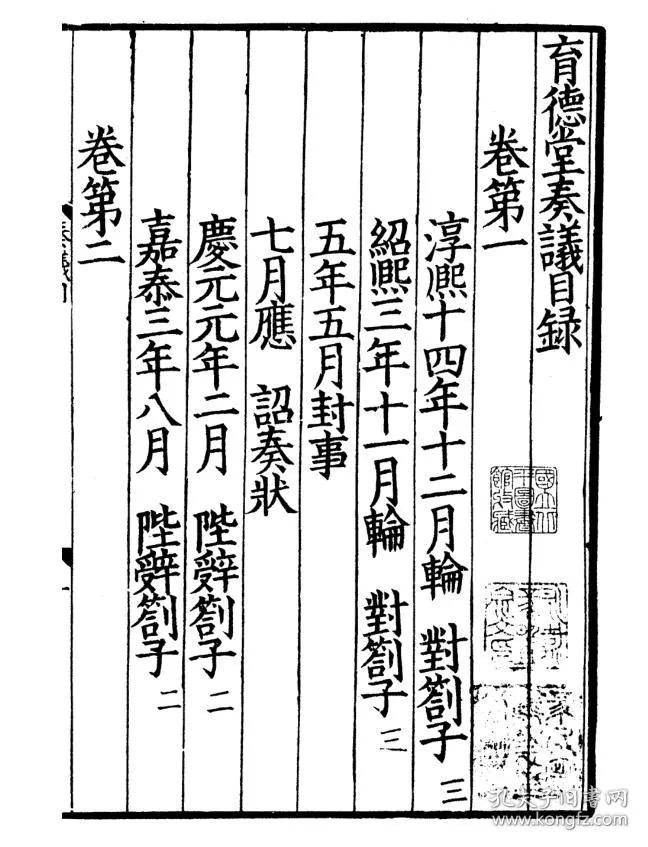 育德堂奏議目録
卷第一
淳熙十四年十二月輪 對劄子 三
紹熙三年十一月輪 對劄子 三
五年五月封事
七月應 詔奏狀
慶元元年二月 陛辭劄子 二
嘉泰三年八月 陛辭劄子 二
卷第二
國立北平圖書館收藏
孔夫子旧书网
www.kongfz.com